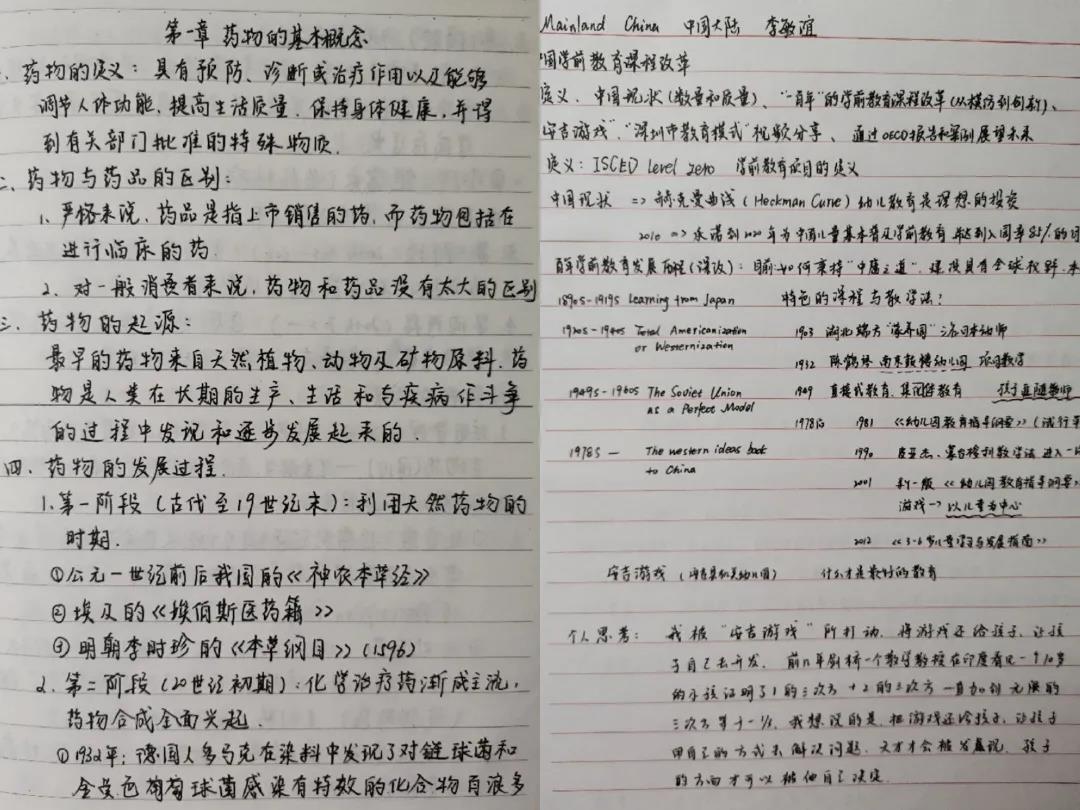 第一章 药物的基本概念
、药物的定义：具有预防、诊断或治疗作用以及能够
调节人体功能，提高生活质量，保持身体健康，并得
到有关部门批准的特殊物质.
二、药物与药品的区别：
1、严格来说，药品是指上市销售的药，而药物包括在
进行临床的药.
2、对一般消费者来说，药物和药品没有太大的区别
三、药物的起源：
最早的药物来自天然植物、动物及矿物原料.药
物是人类在长期的生产、生活和与疾病作斗争
的过程中发现和逐步发展起来的.
四、药物的发展过程.
1.第一阶段（古代至19世纪末）：利用天然药物的
时期.
①公元一世纪前后我国的《神农本草经》
②埃及的《埃伯斯医药籍》
③明朝李时珍的《本草纲目》（1596）
2.第二阶段（20世纪初期）：化学治疗药渐成主流，
药物合成全面兴起.
①1932年：德国人多马克在染料中发现了对链球菌和
金黄色葡萄球菌感染有特效的化合物百浪多
Mainland China 中国大陆 李敏谊
国学前教育课程改革
定义、中国现状（数量和质量）、"一百年"的学前教育课程改革（从模仿到创新）、
安吉游戏"、"深圳市教育模式"视频分享、通过OECD报告和案例展望未来
定义：ISCED Level zero 学前教育项目的定义
中国现状 => 赫克曼曲线（Heckman Curve）幼儿教育是理想的投资
2010 => 承诺到2020年为中国儿童基本普及学前教育 达到入园率85%的目
百年学前教育发展历程（课改）：目前：如何秉持"中庸之道"，建设具有全球视野、本
1890s-1919s Learning from Japan 特色的课程与教学法？
1920s-1940s Total Americanization 1903 湖北端方"蒙养园" 三名日本幼师
or Westernization 1932 陈鹤琴 南京鼓楼幼儿园
1949s-1960s The Soviet Union 1949 直接式教育、集团体教育 孩子
as a Perfect Model
1978后 1981 《幼儿园教育指导纲要》（试行草
1978s — The western ideas back 1990 皮亚杰、蒙台梭利教学法 进入一
to China 2001 新一版《幼儿园教育指导纲要》
游戏 -> 以儿童为中心
2012 《3-6岁儿童学习与发展指南》
安吉游戏 什么才是最好的教育
个人思考： 我被"安吉游戏"所打动，将游戏还给孩子，让孩
子自己去开发。前几年剑桥一个数学教授在印度看见一个10岁
的小孩证明了1的三次方+2的三次方一直加到无限的
三次方等于-1/2。我想说的是，把游戏还给孩子，让孩子
用自己的方式去解决问题，天才才会被发现，孩子
的方向才可以被他自己决定.